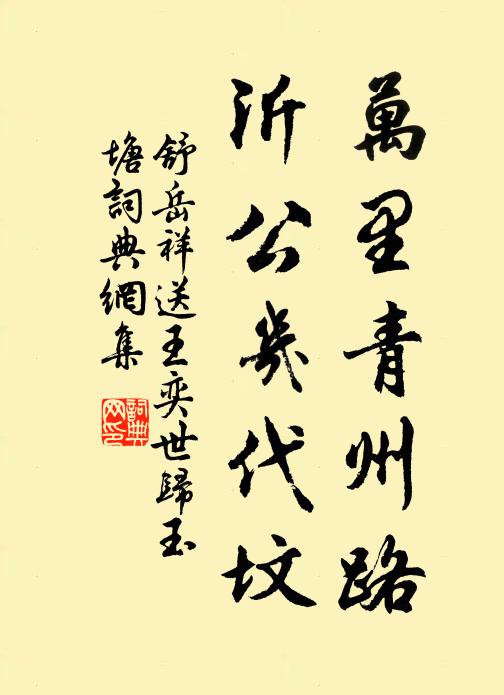 萬里青州路
沂公幾代墳
舒岳祥送王奕世歸玉
塘詞典網集
詞典網印